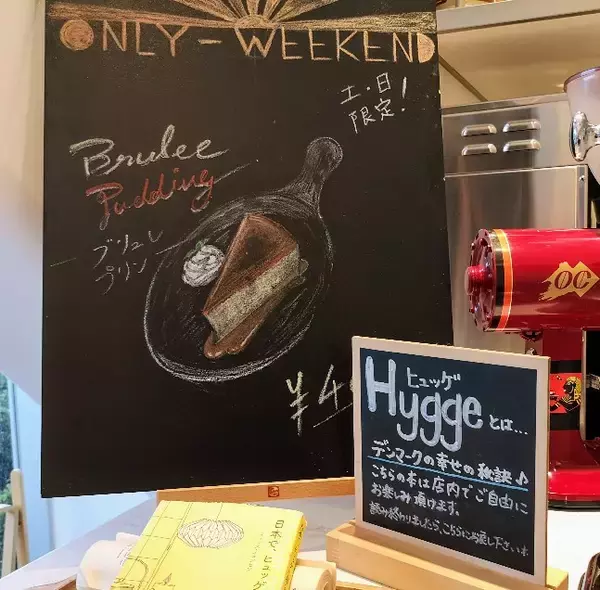 ONLY-WEEKEND
土・日
限定!
Brulee
Pudding
ブリュレ
プリン
¥4
ヒュッゲ
Hyggeとは...
デンマークの幸せの秘訣♪
こちらの本は店内でご自由に
お楽しみ頂けます。
読み終わりましたら、こちらにお戻し下さいませ
OC
日本で、ヒュッゲ